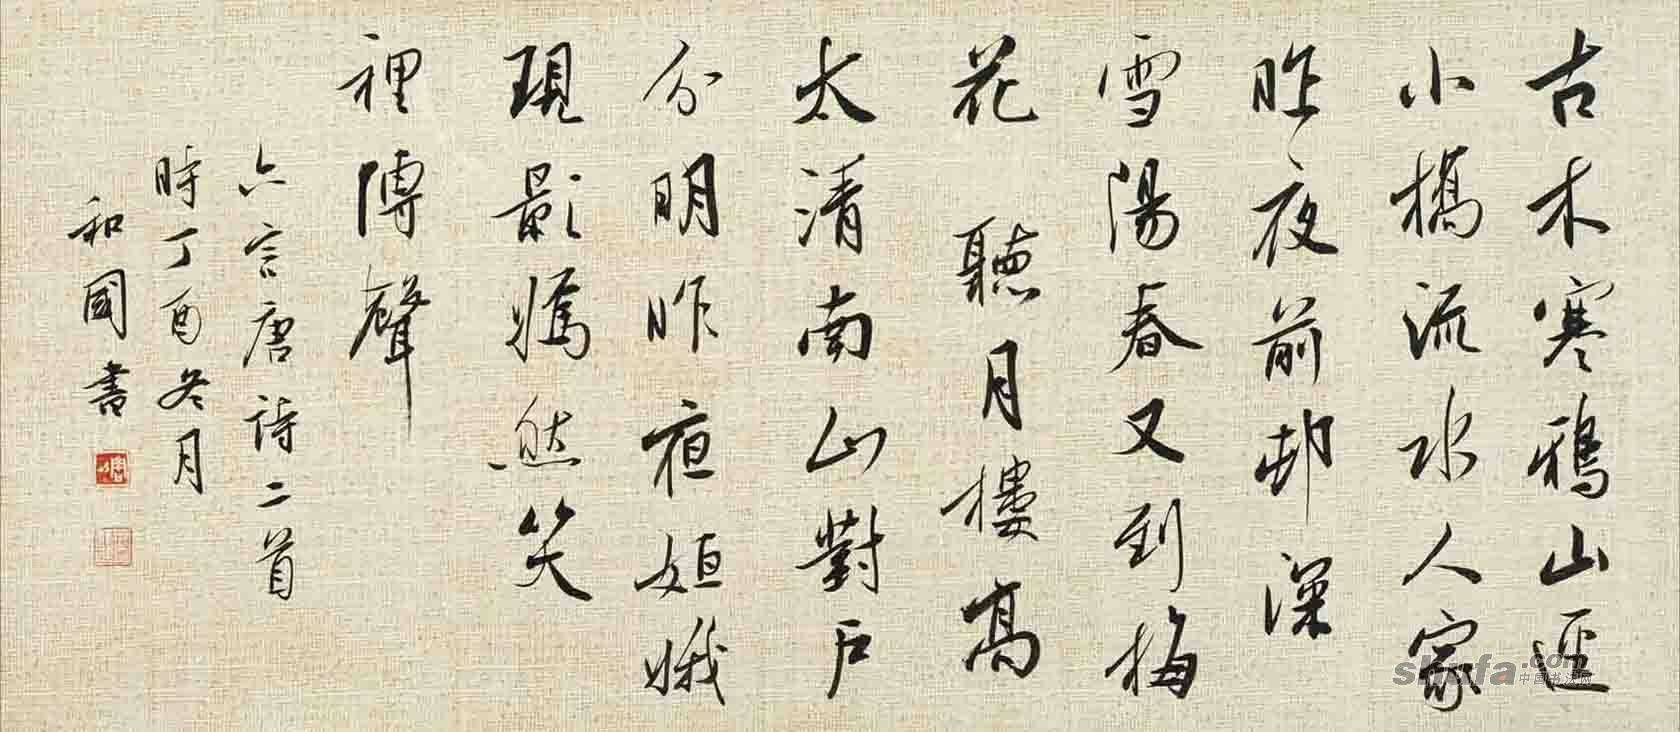 古木寒鴉山逕
小橋流水人家
昨夜前邨深
雪陽春又到梅
花 聽月樓高
太清南山對戶
分明昨夜姮娥
現影嫣然笑
裡傳聲
六言唐詩二首
時丁酉冬月
和國書
shufa.com
中国书法网